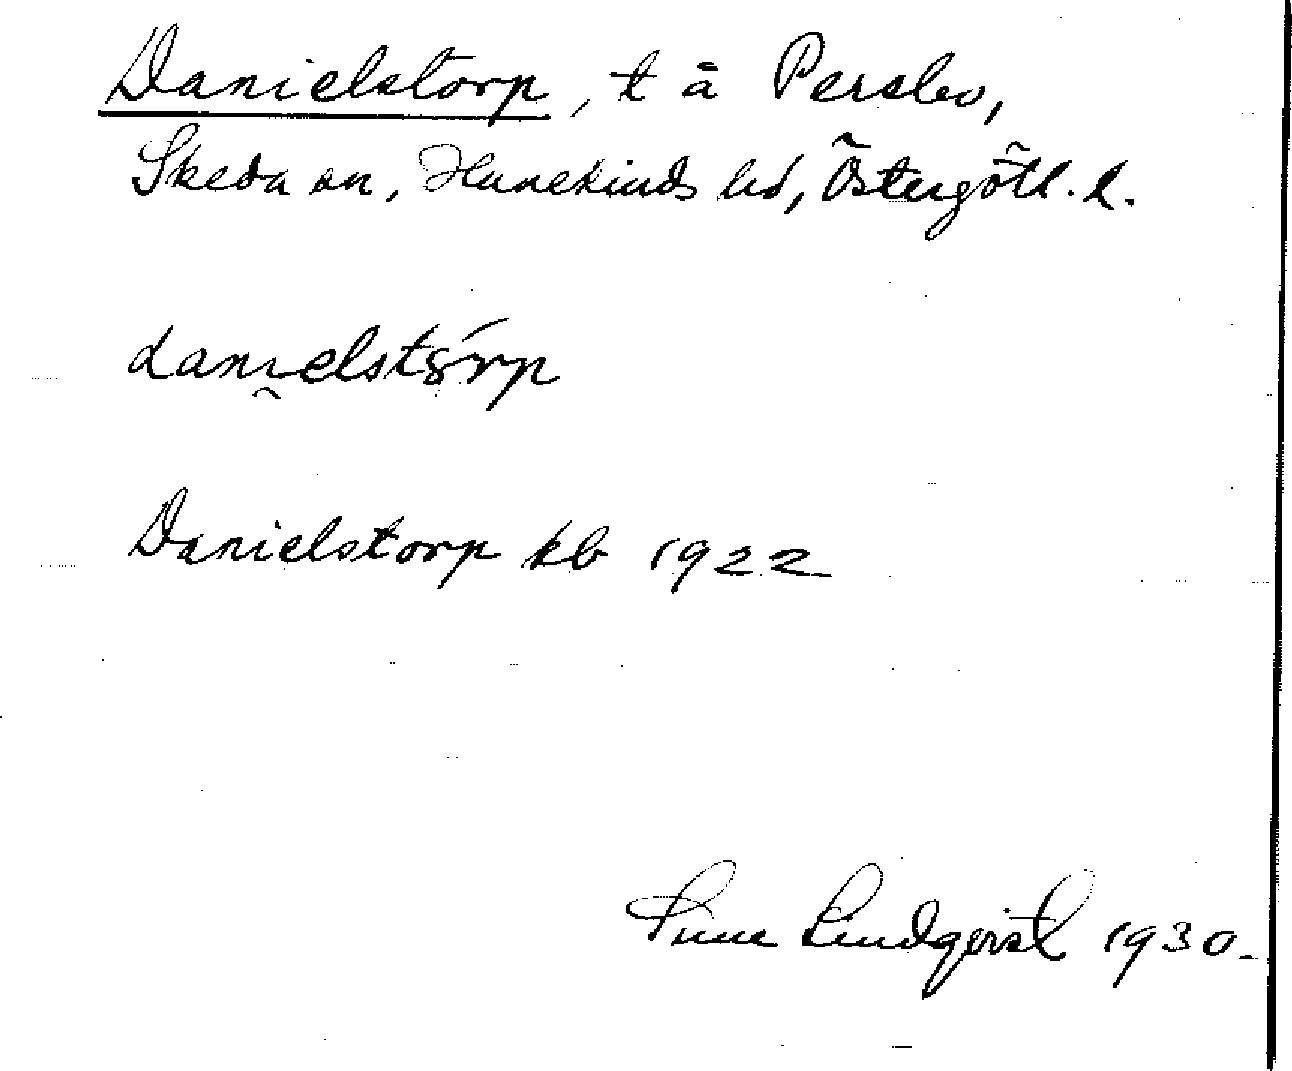 Danielstorp, t å Perslev,
Skeda sn, Hanekinds hd, Östergötl. l.
Danielstorp kb 1922
Sune Lindqvist 1930.